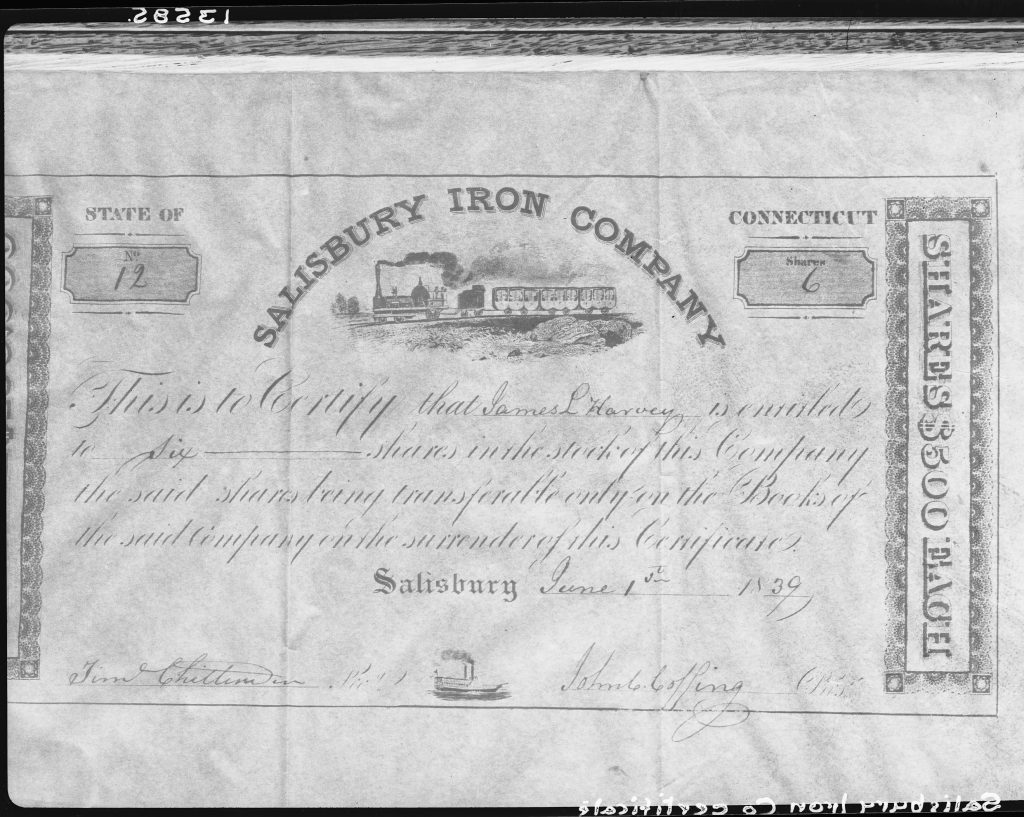 13585
STATE OF
SALISBURY IRON COMPANY
CONNECTICUT
No
12
Shares
6
This is to Certify that James L Harvey is entitled
to six shares in the stock of this Company
the said shares being transferable only on the Books of
the said Company on the surrender of this Certificate.
Salisbury June 1st 1839
John C. Coffing
SHARES $500 EACH
Salisbury Iron Co certificate